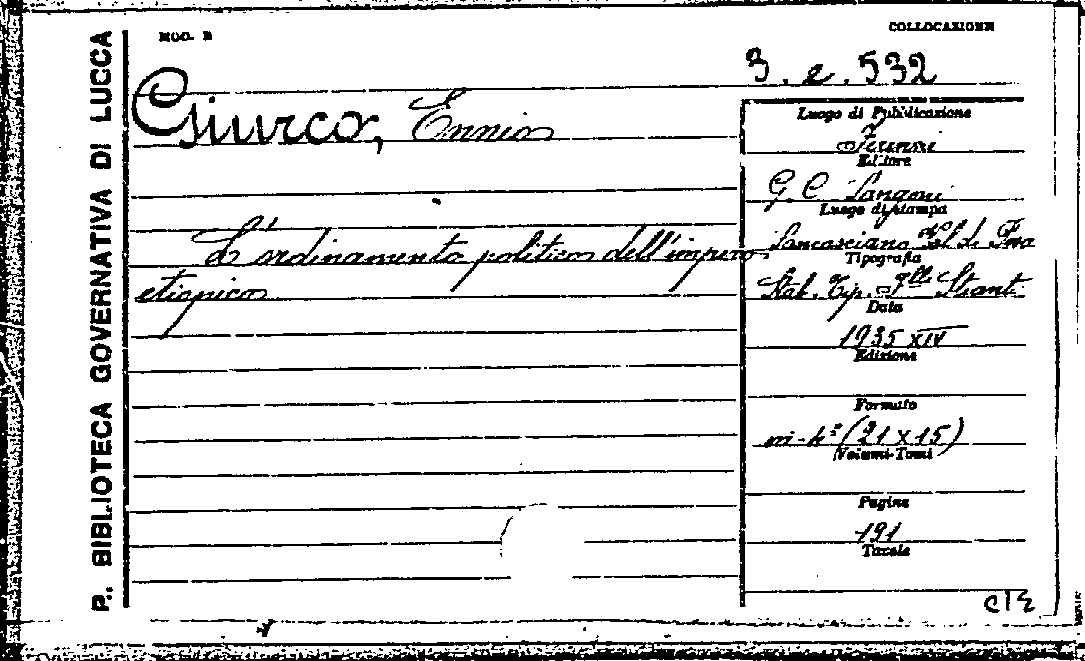 P.. BIBLIOTECA GOVERNATIVA DI LUCCA
MOD. B
COLLOCAZIONE
3. e. 532
Giurco, Ennio
L'ordinamento politico dell'impero
etiopico
Luogo di Pubblicazione
Firenze
Editore
G. C. Sansoni
Luogo di stampa
Sancasciano
Tipografia
Stab. Tip. F.lli Stianti
Data
1935 XIV
Edizione
Formato
in-4° (21 x 15)
Volumi-Tomi
Pagine
191
Tavole